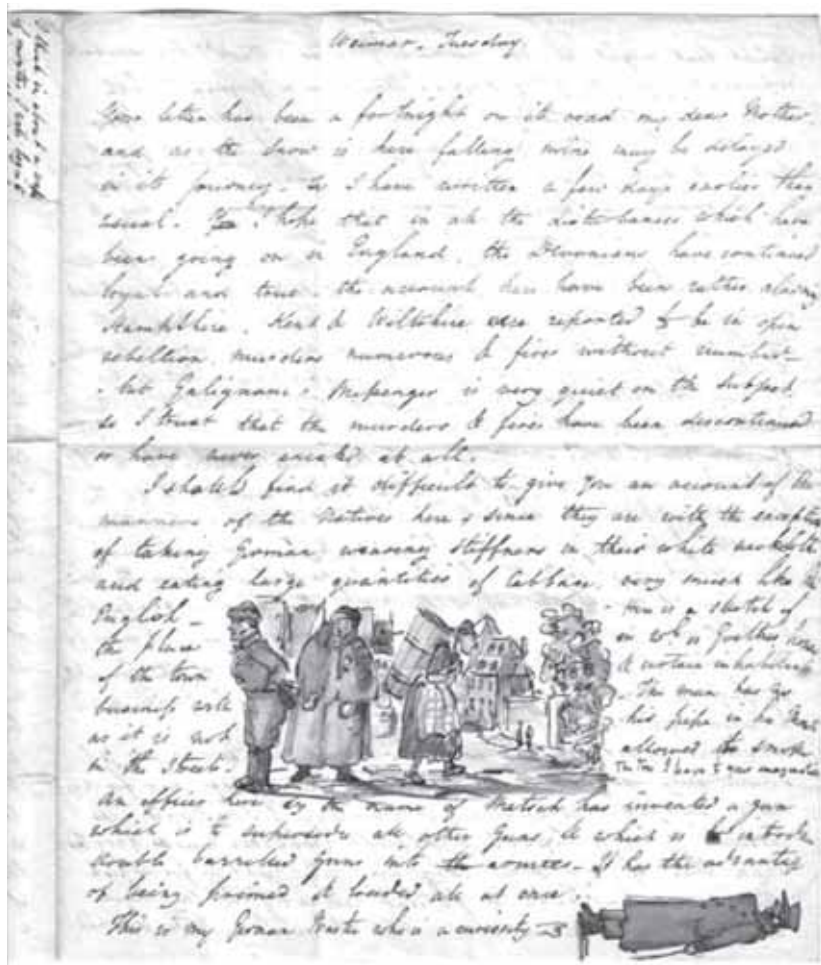 Weimar. Tuesday.
I think in about a
of months, I will
Your letter has been a fortnight on its road my dear Mother,
and as the Snow is here falling mine may be delayed
in its journey. So I have written a few days earlier than
usual. I hope that in all the disturbances which have
been going on in England, the Devonians have continued
loyal and true. the account here have been rather alarming
Hampshire, Kent & Wiltshire are reported to be in open
rebellion, murders numerous & fires without number—
- but Galignani's Messenger is very quiet on the subject
so I trust that the murders & fires have been discontinued
or have never existed at all.
I should find it difficult to give you an account of the
manners of the Natives here, since they are with the exception
of talking German wearing stiffness in their white neckcloth
and eating large quantities of Cabbage, very much like the
English — - this is a sketch of
the place in wh. is Goethes house
of the town & certain inhabitants
business - The man has
as it is not his pipe in his
in the Street. allowed to smoke
The I have to
An officer here by the name of has invented a gun
which is to supersede all other Guns, & which is
double barrelled Guns into the It has the advantage
of being primed & loaded all at once.
This is my German Master who is a curiosity